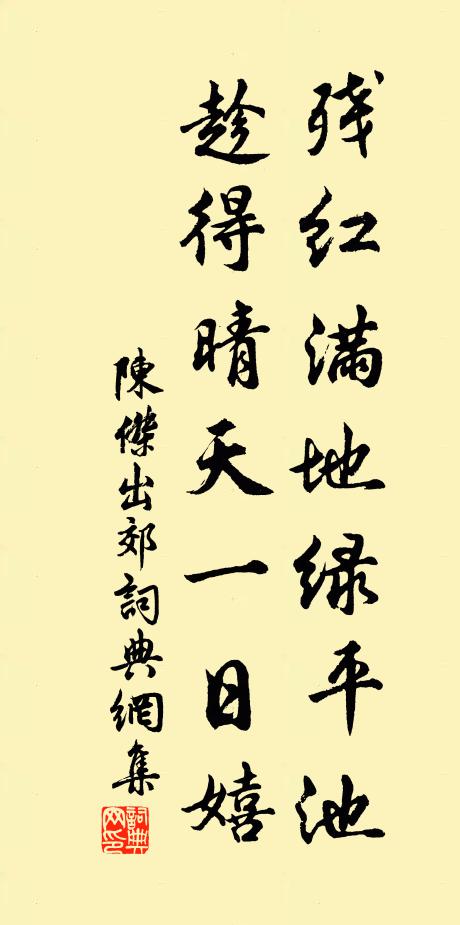 残红满地绿平池
趁得晴天一日嬉
陳傑出郊詞典網集
詞典网印